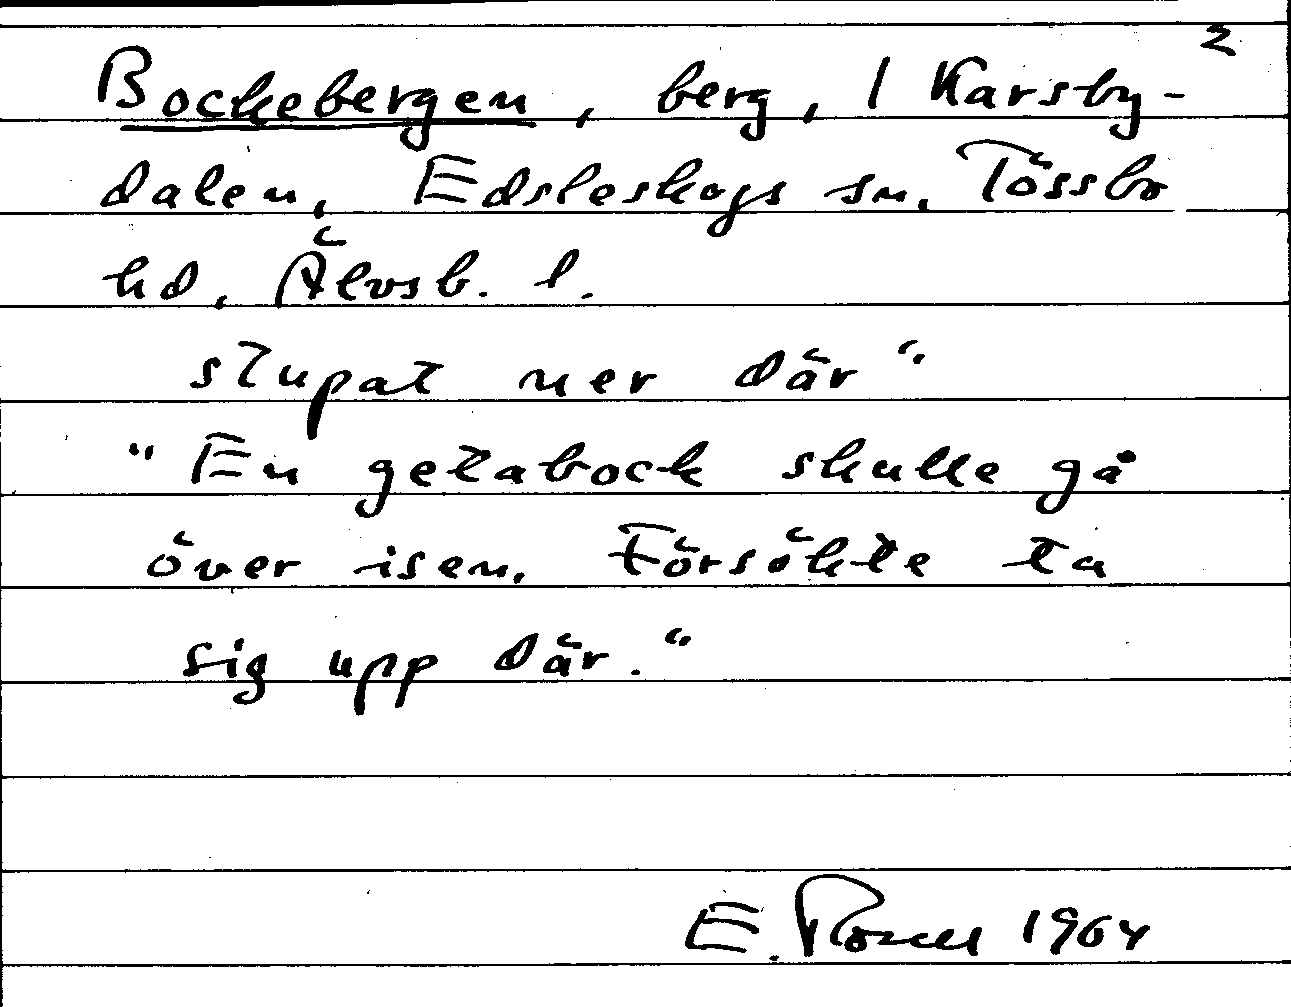 2
Bockebergen, berg, I Karsby-
dalen, Edsleskogs sn. Tössbo
hd, Älvsb. l.
stupat ner där"
"En getabock skulle gå
över isen. Försökte ta
sig upp där."
E. 1964